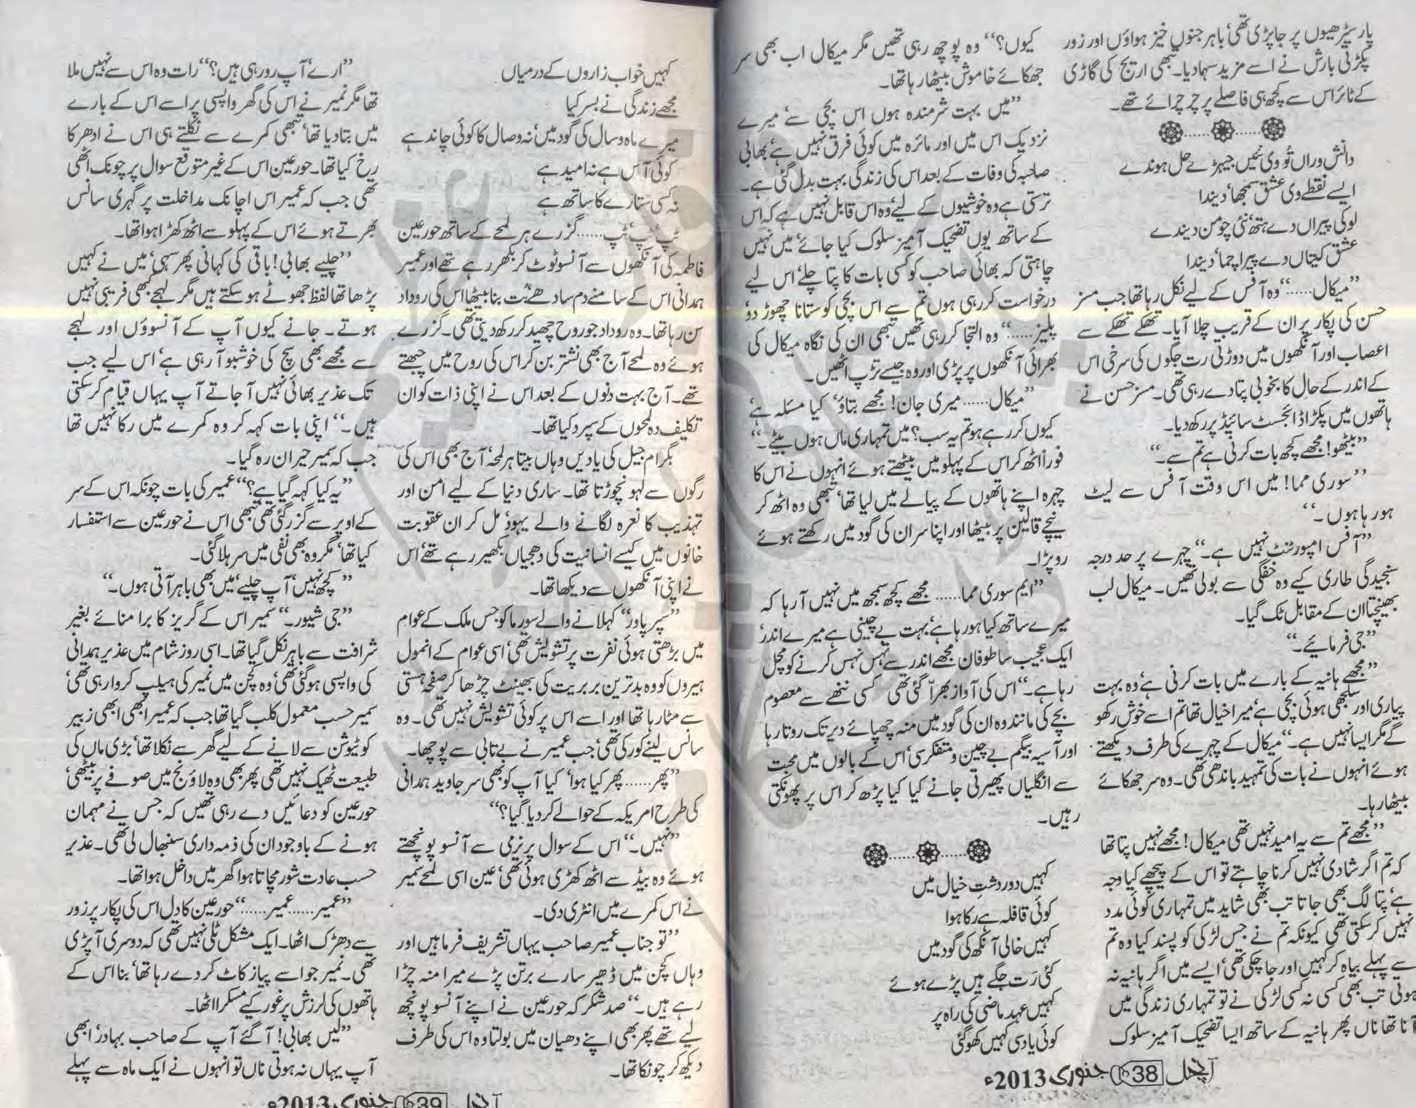 پار سیڑھیوں پر جاپڑی تھی‘ باہر جنوں خیز ہواؤں اور زور
پکڑتی بارش نے اسے مزید سہما دیا۔ تبھی اریج کی گاڑی
کے ٹائر اس سے کچھ ہی فاصلے پر چرچرائے تھے۔
دانش وراں تُو وی نئیں جیہڑے حل ہوندے
ایسے نقطے وی عشق سمجھا‘ دیندا
لوکی پیراں دے ہتھ نئی چومن دیندے
عشق کیتاں دے پیرا چما‘ دیندا
”میکال......“ وہ آفس کے لیے نکل رہا تھا جب مسز
حسن کی پکار پر ان کے قریب چلا آیا۔ تھکے تھکے سے
اعصاب اور آنکھوں میں دوڑتی رت جگوں کی سرخی اس
کے اندر کے حال کا بخوبی پتا دے رہی تھی۔ مسز حسن نے
ہاتھوں میں پکڑا ڈائجسٹ سائیڈ پر رکھ دیا۔
”بیٹھو! مجھے کچھ بات کرنی ہے تم سے۔“
”سوری مما! میں اس وقت آفس سے لیٹ
ہو رہا ہوں۔“
”آفس امپورٹنٹ نہیں ہے۔“ چہرے پر حد درجہ
سنجیدگی طاری کیے وہ خفگی سے بولی تھیں۔ میکال لب
بھینچتا ان کے مقابل ٹک گیا۔
”جی فرمائیے۔“
”مجھے ہانیہ کے بارے میں بات کرنی ہے‘ وہ بہت
پیاری اور سلجھی ہوئی بچی ہے‘ میرا خیال تھا تم اسے خوش رکھو
گے مگر ایسا نہیں ہے۔“ میکال کے چہرے کی طرف دیکھتے
ہوئے انہوں نے بات کی تمہید باندھی تھی۔ وہ سر جھکائے
بیٹھا رہا۔
”مجھے تم سے یہ امید نہیں تھی میکال! مجھے نہیں پتا تھا
کہ تم اگر شادی نہیں کرنا چاہتے تو اس کے پیچھے کیا وجہ
ہے‘ پتا لگ بھی جاتا تب بھی شاید میں تمہاری کوئی مدد
نہیں کرسکتی تھی کیونکہ تم نے جس لڑکی کو پسند کیا وہ تم
سے پہلے بیاہ کر کہیں اور جا چکی تھی‘ ایسے میں اگر ہانیہ نہ
ہوتی تب بھی کسی نہ کسی لڑکی نے تو تمہاری زندگی میں
آنا تھا ناں پھر ہانیہ کے ساتھ ایسا تضحیک آمیز سلوک
کیوں؟“ وہ پوچھ رہی تھیں مگر میکال اب بھی سر
جھکائے خاموش بیٹھا رہا تھا۔
”میں بہت شرمندہ ہوں اس بچی سے‘ میرے
نزدیک اس میں اور مائرہ میں کوئی فرق نہیں ہے‘ بھائی
صاحبہ کی وفات کے بعد اس کی زندگی بہت بدل گئی ہے۔
ترستی ہے وہ خوشیوں کے لیے‘ وہ اس قابل نہیں ہے کہ اس
کے ساتھ یوں تضحیک آمیز سلوک کیا جائے‘ میں نہیں
چاہتی کہ بھائی صاحب کو کسی بات کا پتا چلے‘ اس لیے
درخواست کر رہی ہوں تم سے اس بچی کو ستانا چھوڑ دو
پلیز......“ وہ التجا کر رہی تھیں تبھی ان کی نگاہ میکال کی
بھرائی آنکھوں پر پڑی اور وہ جیسے تڑپ اٹھیں۔
”میکال...... میری جان! مجھے بتاؤ‘ کیا مسئلہ ہے‘
کیوں کر رہے ہو تم یہ سب؟ میں تمہاری ماں ہوں بیٹے۔“
فوراً اٹھ کر اس کے پہلو میں بیٹھتے ہوئے انہوں نے اس کا
چہرہ اپنے ہاتھوں کے پیالے میں لیا تھا‘ تبھی وہ اٹھ کر
نیچے قالین پر بیٹھا اور اپنا سر ان کی گود میں رکھتے ہوئے
رو پڑا۔
”ایم سوری مما...... مجھے کچھ سمجھ میں نہیں آ رہا کہ
میرے ساتھ کیا ہو رہا ہے‘ بہت بے چینی ہے میرے اندر‘
ایک عجیب سا طوفان مجھے اندر سے تہس نہس کرنے کو مچل
رہا ہے۔“ اس کی آواز بھرّا گئی تھی‘ کسی ننھے سے معصوم
بچے کی مانند وہ ان کی گود میں منہ چھپائے دیر تک روتا رہا
اور آسیہ بیگم بے چین و متفکر سی اس کے بالوں میں محبت
سے انگلیاں پھیرتی جانے کیا کیا پڑھ کر اس پر پھونکتی
رہیں۔
کہیں دور دشتِ خیال میں
کوئی قافلہ ہے رکا ہوا
کہیں خالی آنکھ کی گود میں
کئی رَت جگے ہیں پڑے ہوئے
کہیں عہدِ ماضی کی راہ پر
کوئی یاد سی کہیں کھوگئی
آنچل 38 جنوری 2013ء
کہیں خواب زاروں کے درمیاں
مجھے زندگی نے بسر کیا
میرے ماہ و سال کی گود میں‘ نہ وصال کا کوئی چاند ہے
کوئی آس ہے نہ امید ہے
نہ کسی ستارے کا ساتھ ہے
ٹپ ٹپ‘ ٹپ...... گزرے ہر لمحے کے ساتھ حورعین
فاطمہ کی آنکھوں سے آنسو ٹوٹ کر بکھر رہے تھے اور عمیر
ہمدانی اس کے سامنے دم سادھے بُت بنا بیٹھا اس کی روداد
سن رہا تھا۔ وہ روداد جو روح چھید کر رکھ دیتی تھی۔ گزرے
ہوئے وہ لمحے آج بھی نشتر بن کر اس کی روح میں چبھتے
تھے۔ آج بہت دنوں کے بعد اس نے اپنی ذات کو ان
تکلیف دہ لمحوں کے سپرد کیا تھا۔
بگرام جیل کی یادیں وہاں بیتا ہر لمحہ آج بھی اس کی
رگوں سے لہو نچوڑتا تھا۔ ساری دنیا کے لیے امن اور
تہذیب کا نعرہ لگانے والے یہود‘ مل کر ان عقوبت
خانوں میں کیسے انسانیت کی دھجیاں بکھیر رہے تھے‘ اس
نے اپنی آنکھوں سے دیکھا تھا۔
”سپر پاور“ کہلانے والے سورما کو جس ملک کے عوام
میں بڑھتی ہوئی نفرت پر تشویش تھی‘ اسی عوام کے انمول
ہیروں کو وہ بدترین بربریت کی بھینٹ چڑھا کر صفحہ ہستی
سے مٹا رہا تھا اور اسے اس پر کوئی تشویش نہیں تھی۔ وہ
سانس لینے کو رکی تھی‘ جب عمیر نے بے تابی سے پوچھا۔
”پھر...... پھر کیا ہوا‘ کیا آپ کو بھی سر جاوید ہمدانی
کی طرح امریکہ کے حوالے کر دیا گیا؟“
”نہیں۔“ اس کے سوال پر نرمی سے آنسو پونچھتے
ہوئے وہ بیڈ سے اٹھ کھڑی ہوئی تھی‘ عین اسی لمحے نمیر
نے اس کمرے میں انٹری دی۔
”تو جناب عمیر صاحب یہاں تشریف فرما ہیں اور
وہاں کچن میں ڈھیر سارے برتن پڑے میرا منہ چڑا
رہے ہیں۔“ صد شکر کہ حورعین نے اپنے آنسو پونچھ
لیے تھے پھر بھی اپنے دھیان میں بولتا وہ اس کی طرف
دیکھ کر چونکا تھا۔
”ارے‘ آپ رو رہی ہیں؟“ رات وہ اس سے نہیں ملا
تھا مگر نمیر نے اس کی گھر واپسی پر اسے اس کے بارے
میں بتا دیا تھا‘ تبھی کمرے سے نکلتے ہی اس نے ادھر کا
رخ کیا تھا۔ حورعین اس کے غیر متوقع سوال پر چونک اٹھی
تھی جب کہ عمیر اس اچانک مداخلت پر گہری سانس
بھرتے ہوئے اس کے پہلو سے اٹھ کھڑا ہوا تھا۔
”چلیے بھابی! باقی کی کہانی پھر سہی‘ میں نے کہیں
پڑھا تھا لفظ جھوٹے ہو سکتے ہیں مگر لہجے بھی فریبی نہیں
ہوتے۔ جانے کیوں آپ کے آنسوؤں اور لہجے
سے مجھے بھی سچ کی خوشبو آ رہی ہے‘ اس لیے جب
تک عذیر بھائی نہیں آ جاتے آپ یہاں قیام کرسکتی
ہیں۔“ اپنی بات کہہ کر وہ کمرے میں رکا نہیں تھا
جب کہ سمیر حیران رہ گیا۔
”یہ کیا کہہ گیا ہے؟“ عمیر کی بات چونکہ اس کے سر
کے اوپر سے گزر گئی تھی تبھی اس نے حورعین سے استفسار
کیا تھا‘ مگر وہ بھی نفی میں سر ہلا گئی۔
”کچھ نہیں آپ چلیے‘ میں بھی باہر آتی ہوں۔“
”جی شیور۔“ سمیر اس کے گریز کا برا منائے بغیر
شرافت سے باہر نکل گیا تھا۔ اسی روز شام میں عذیر ہمدانی
کی واپسی ہو گئی تھی‘ وہ کچن میں نمیر کی ہیلپ کروا رہی تھی‘
سمیر حسب معمول کلب گیا تھا جب کہ عمیر ابھی ابھی زبیر
کو ٹیوشن سے لانے کے لیے گھر سے نکلا تھا‘ بڑی ماں کی
طبیعت ٹھیک نہیں تھی پھر بھی وہ لاؤنج میں صوفے پر بیٹھی‘
حورعین کو دعائیں دے رہی تھیں کہ جس نے مہمان
ہونے کے باوجود ان کی ذمہ داری سنبھال لی تھی۔ عذیر
حسب عادت شور مچاتا ہوا گھر میں داخل ہوا تھا۔
”عمیر...... عمیر......“ حورعین کا دل اس کی پکار پر زور
سے دھڑک اٹھا۔ ایک مشکل ٹلی نہیں تھی کہ دوسری آ پڑی
تھی۔ نمیر جو اسے پیاز کاٹ کر دے رہا تھا‘ بنا اس کے
ہاتھوں کی لرزش پر غور کیے مسکرا اٹھا۔
”لیں بھابی! آ گئے آپ کے صاحب بہادر‘ ابھی
آپ یہاں نہ ہوتی ناں تو انہوں نے ایک ماہ سے پہلے
آنچل 39 جنوری 2013ء